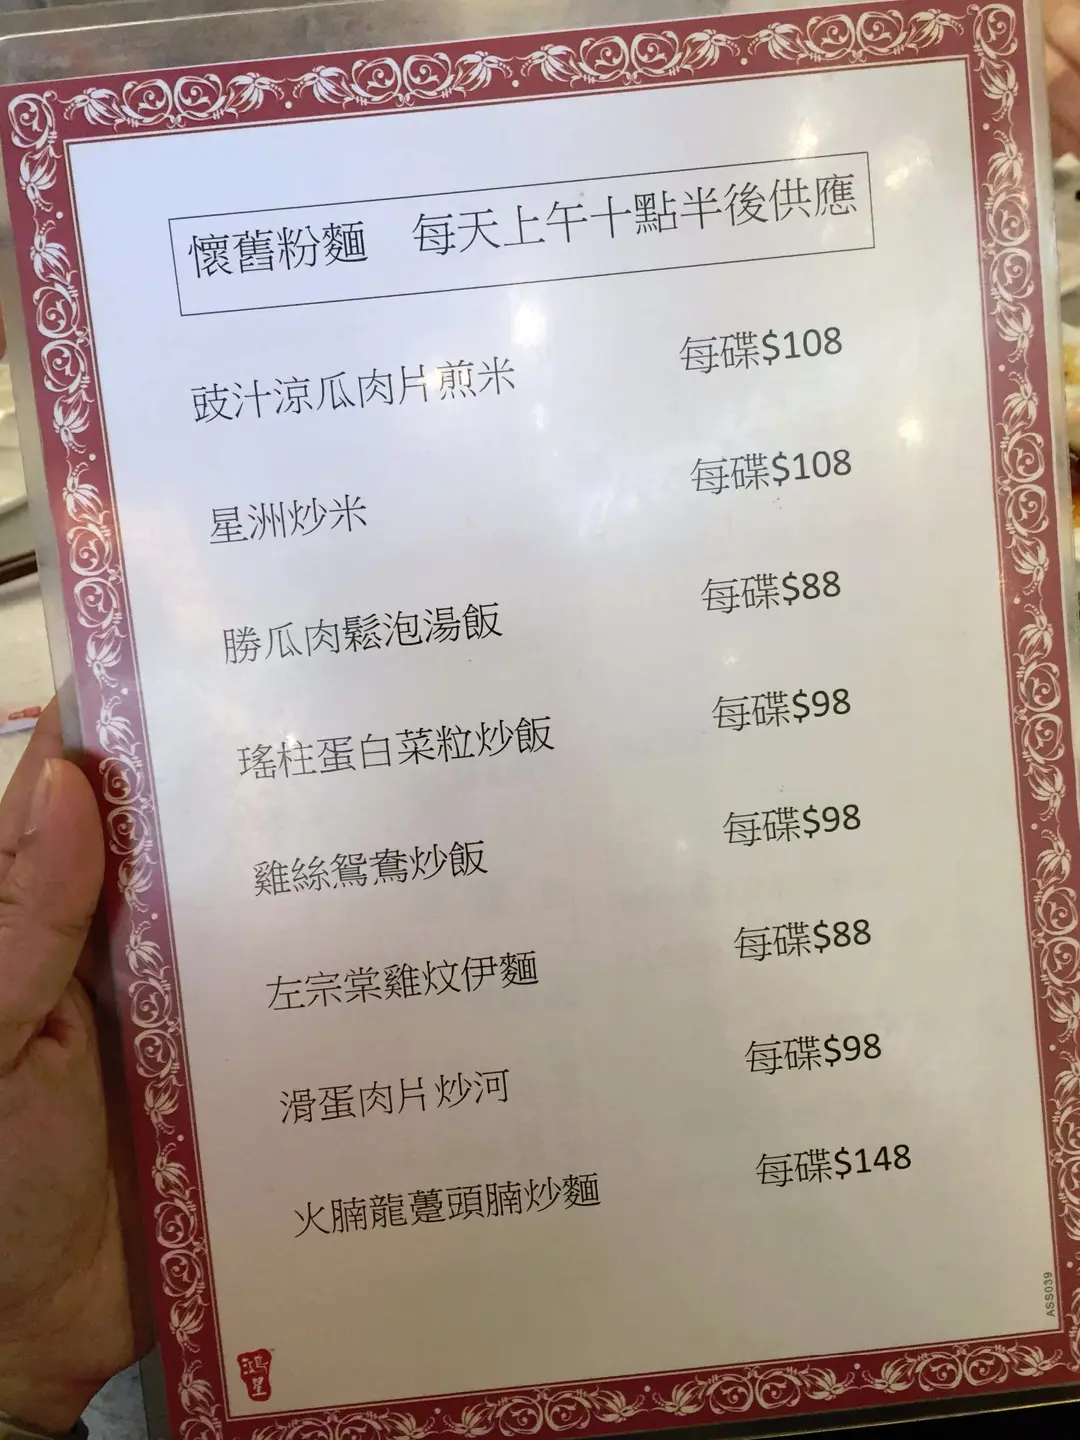 懷舊粉麵 每天上午十點半後供應
豉汁涼瓜肉片煎米 每碟$108
星洲炒米 每碟$108
勝瓜肉鬆泡湯飯 每碟$88
瑤柱蛋白菜粒炒飯 每碟$98
雞絲鴛鴦炒飯 每碟$98
左宗棠雞炆伊麵 每碟$88
滑蛋肉片炒河 每碟$98
火腩龍躉頭腩炒麵 每碟$148
鴻星
ASS039